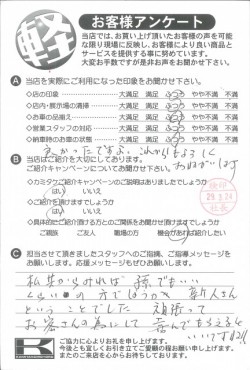 軽
お客様アンケート
当店では、お買い上げ頂いたお客様の声を可能
な限り現場に反映し、お客様により良い商品と
サービスを提供する事に努めています。
大変お手数ですが是非お声をお聞かせ下さい。
A 当店を実際にご利用になった印象をお聞かせ下さい。
◇店の印象 大満足 満足 ふつう やや不満 不満
◇店内・展示場の清掃 大満足 満足 ふつう やや不満 不満
◇お車の品揃え 大満足 満足 ふつう やや不満 不満
◇営業スタッフの対応 大満足 満足 ふつう やや不満 不満
◇納車時のお車の状態 大満足 満足 ふつう やや不満 不満
良かったですよ。これからもよろしく
おねがいします
B ご紹介を大切にしております。
ご紹介キャンペーンについてお聞かせ下さい。
◇カミタケご紹介キャンペーンのご説明はありましたでしょうか
はい いいえ
29.3.24
◇ご紹介を頂けますでしょうか
はい いいえ
◇具体的にご紹介頂ける方とのご関係をお聞かせ頂けますでしょうか
ご親族 ご友人 職場の方 機会があれば紹介したい
C 担当させて頂きましたスタッフへのご指摘、ご指導メッセージを
お願いします。応援メッセージもぜひお願いします。
私共からみれば 孫でも
くらいの 方でしょうか 新人さん
ということでした 頑張って
お客さんの為にして 喜んでもらえると
いいですね
K
ご協力に心よりお礼を申し上げます。
今後とも宜しくお引き立てご愛顧の程お願い申し上げます。
またのご来店を心からお待ちしております。